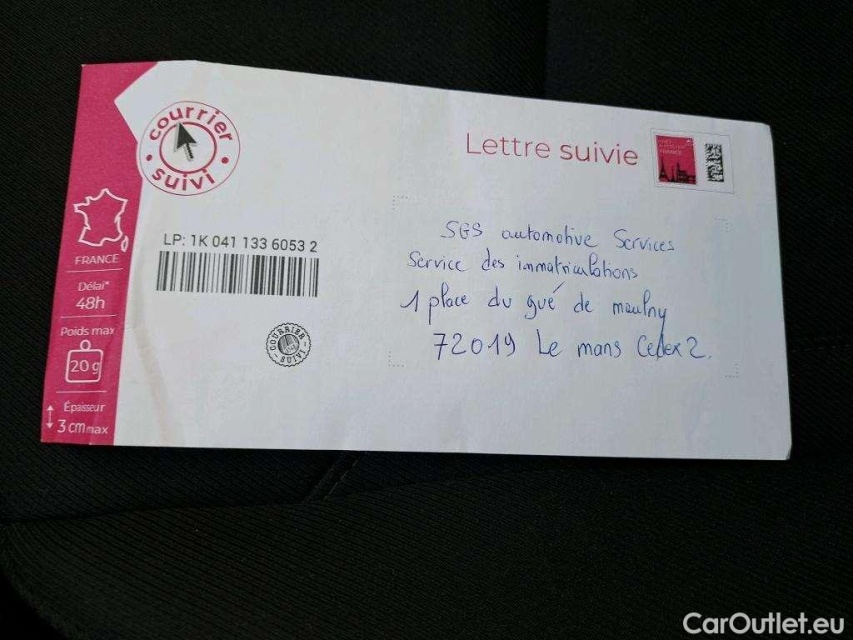 courrier
suivi
Lettre suivie
FRANCE
LP: 1K 041 133 6053 2
FRANCE
Délai*
48h
Poids max
20g
Épaisseur
3 cm max
COURRIER
SUIVI
SGS automotive Services
Service des immatriculations
1 place du gué de maulny
72019 Le mans Cedex 2.
CarOutlet.eu